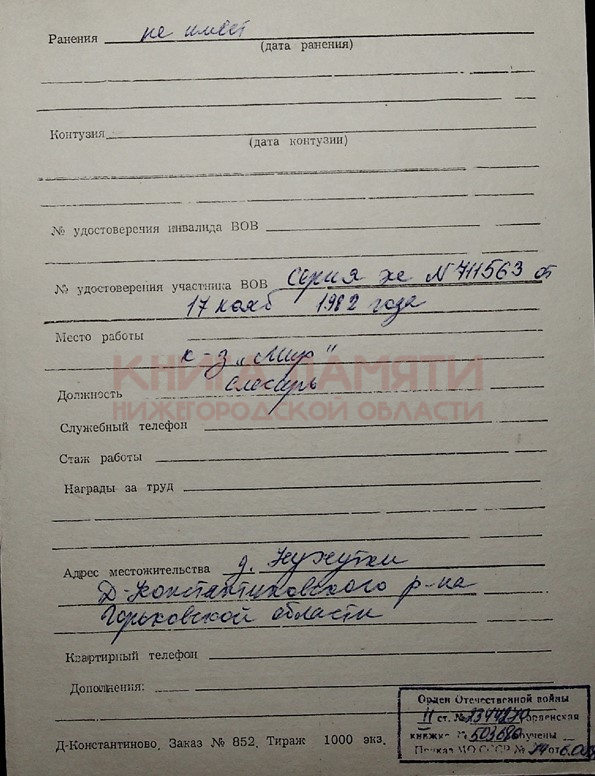 Ранения не имеет
(дата ранения)
Контузия
(дата контузии)
№ удостоверения инвалида ВОВ
№ удостоверения участника ВОВ Серия хе № 711563 от
17 нояб 1982 года
Место работы
к-з „Мир"
Должность слесарь
КНИГА ПАМЯТИ
НИЖЕГОРОДСКОЙ ОБЛАСТИ
Служебный телефон
Стаж работы
Награды за труд
Адрес местожительства д. Нужутки
Д-Константиновского р-на
Горьковской области
Квартирный телефон
Дополнения:
Орден Отечественной войны
II ст. № орденская
книжка № вручены
Приказ МО СССР № от
Д-Константиново, Заказ № 852. Тираж 1000 экз.